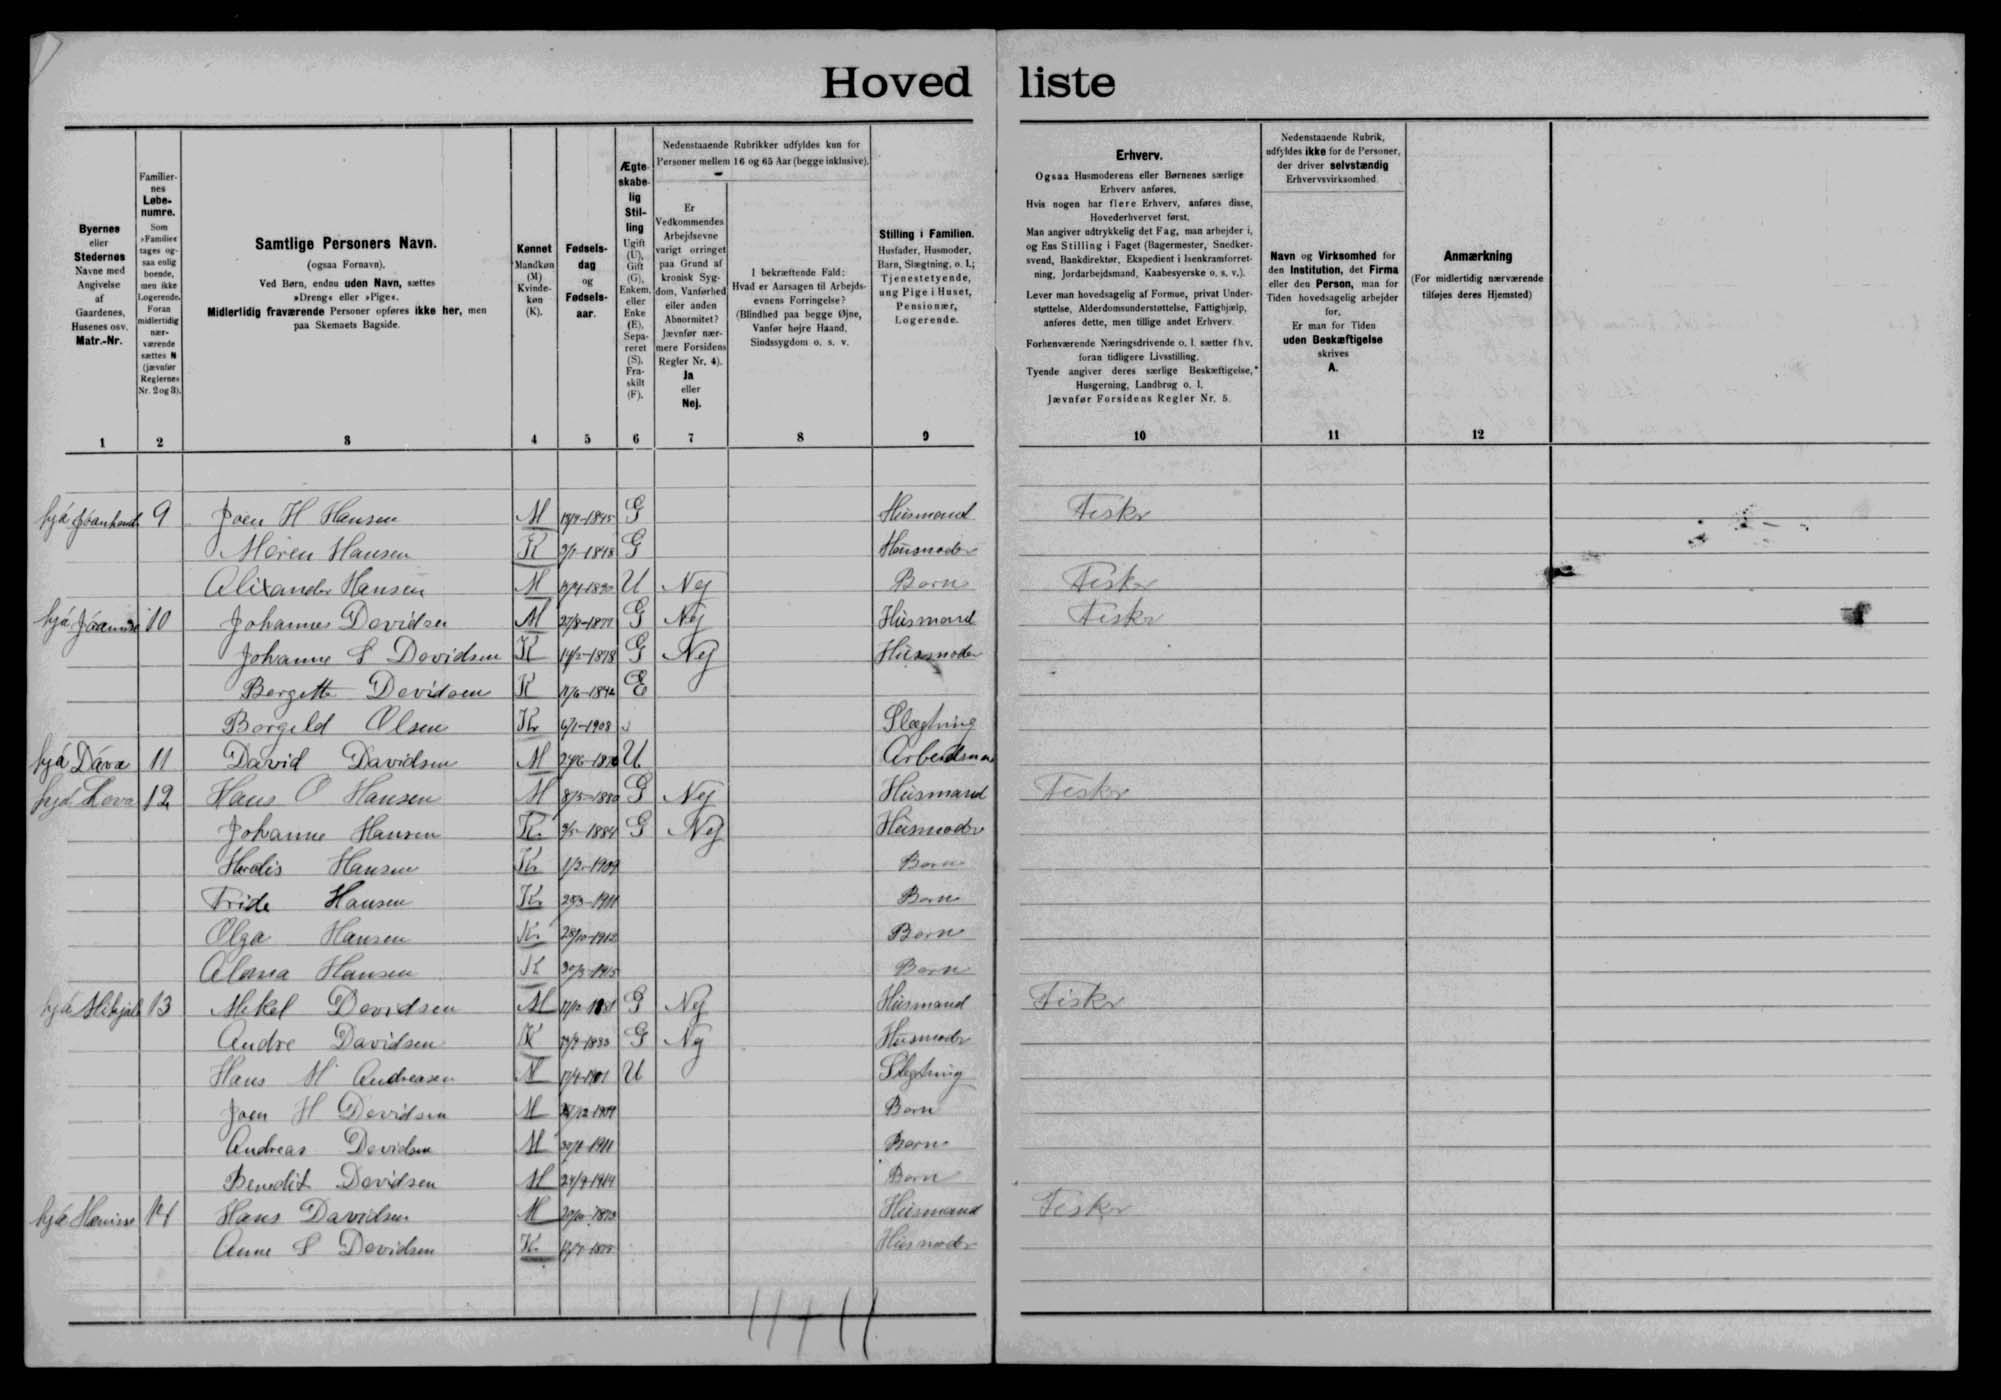 Hoved liste
Byernes
eller
Stedernes
Navne med
Angivelse
af
Gaardenes,
Husenes osv.
Matr.-Nr.
Familier-
nes
Løbe-
numre.
Som
»Familie«
tages og-
saa enlig
boende,
men ikke
Logerende.
Foran
midlertidig
nær-
værende
sættes N
(jævnfør
Reglernes
Nr. 2 og 3).
Samtlige Personers Navn.
(ogsaa Fornavn).
Ved Børn, endnu uden Navn, sættes
»Dreng« eller »Pige«.
Midlertidig fraværende Personer opføres ikke her, men
paa Skemaets Bagside.
Kønnet
Mandkøn
(M)
Kvinde-
køn
(K).
Fødsels-
dag
og
Fødsels-
aar.
Ægte-
skabe-
lig
Stil-
ling
Ugift
(U),
Gift
(G),
Enkem.
eller
Enke
(E),
Sepa-
reret
(S),
Fra-
skilt
(F).
Nedenstaaende Rubrikker udfyldes kun for
Personer mellem 16 og 65 Aar (begge inklusive).
Er
Vedkommendes
Arbejdsevne
varigt forringet
paa Grund af
kronisk Syg-
dom, Vanførhed
eller anden
Abnormitet?
Jævnfør nær-
mere Forsidens
Regler Nr. 4).
Ja
eller
Nej.
I bekræftende Fald:
Hvad er Aarsagen til Arbejds-
evnens Forringelse?
(Blindhed paa begge Øjne,
Vanfør højre Haand,
Sindssygdom o. s. v.
Stilling i Familien.
Husfader, Husmoder,
Barn, Slægtning, o. l.;
Tjenestetyende,
ung Pige i Huset,
Pensionær,
Logerende.
Erhverv.
Ogsaa Husmoderens eller Børnenes særlige
Erhverv anføres.
Hvis nogen har flere Erhverv, anføres disse,
Hovederhvervet først.
Man angiver udtrykkelig det Fag, man arbejder i,
og Ens Stilling i Faget (Bagermester, Snedker-
svend, Bankdirektør, Ekspedient i Isenkramforret-
ning, Jordarbejdsmand, Kaabesyerske o. s. v.).
Lever man hovedsagelig af Formue, privat Under-
støttelse, Alderdomsunderstøttelse, Fattighjælp,
anføres dette, men tillige andet Erhverv.
Forhenværende Næringsdrivende o. l. sætter fhv.
foran tidligere Livsstilling.
Tyende angiver deres særlige Beskæftigelse,
Husgerning, Landbrug o. l.
Jævnfør Forsidens Regler Nr. 5.
Nedenstaaende Rubrik,
udfyldes ikke for de Personer,
der driver selvstændig
Erhvervsvirksomhed.
Navn og Virksomhed for
den Institution, det Firma
eller den Person, man for
Tiden hovedsagelig arbejder
for.
Er man for Tiden
uden Beskæftigelse
skrives
A.
Anmærkning
(For midlertidig nærværende
tilføjes deres Hjemsted)
1 2 3 4 5 6 7 8 9 10 11 12
hjá 9 Joen H Hansen M G Husmand Fiskr
Maren Hansen K 2/1-1848 G Husmoder
Alixander Hansen M U Nej Barn Fiskr
hjá 10 Johannes Davidsen M 27/8-1877 G Nej Husmand Fiskr
Johanne S Davidsen K 14/2-1878 G Nej Husmoder
Bergette Davidsen K 11/6-1842 E
Borgild Olsen Kv 6/1-1908 Slægtning
hjá Dáva 11 David Davidsen M U Arbeidsman
hjá 12 Hans O Hansen M 8/5-1880 G Nej Husmand Fiskr
Johanne Hansen K. 9/5-1884 G Nej Husmoder
Herdis Hansen Kv 1/2-1909 Barn
Fride Hansen Kv 25/3-1911 Barn
Olga Hansen Kv 28/10-1912 Barn
Hansen K 30/3-1915 Barn
hjá 13 Mikel Davidsen M 11/12-1881 G Nej Husmand Fiskr
Andre Davidsen K G Nej Husmoder
Hans M Andreasen M 17/4-1901 U Slægtning
Joen H Davidsen M Barn
Andreas Davidsen M Barn
Benedikt Davidsen M 24/9-1914 Barn
hjá 14 Hans Davidsen M Husmand Fiskr
Anne S Davidsen K. Husmoder